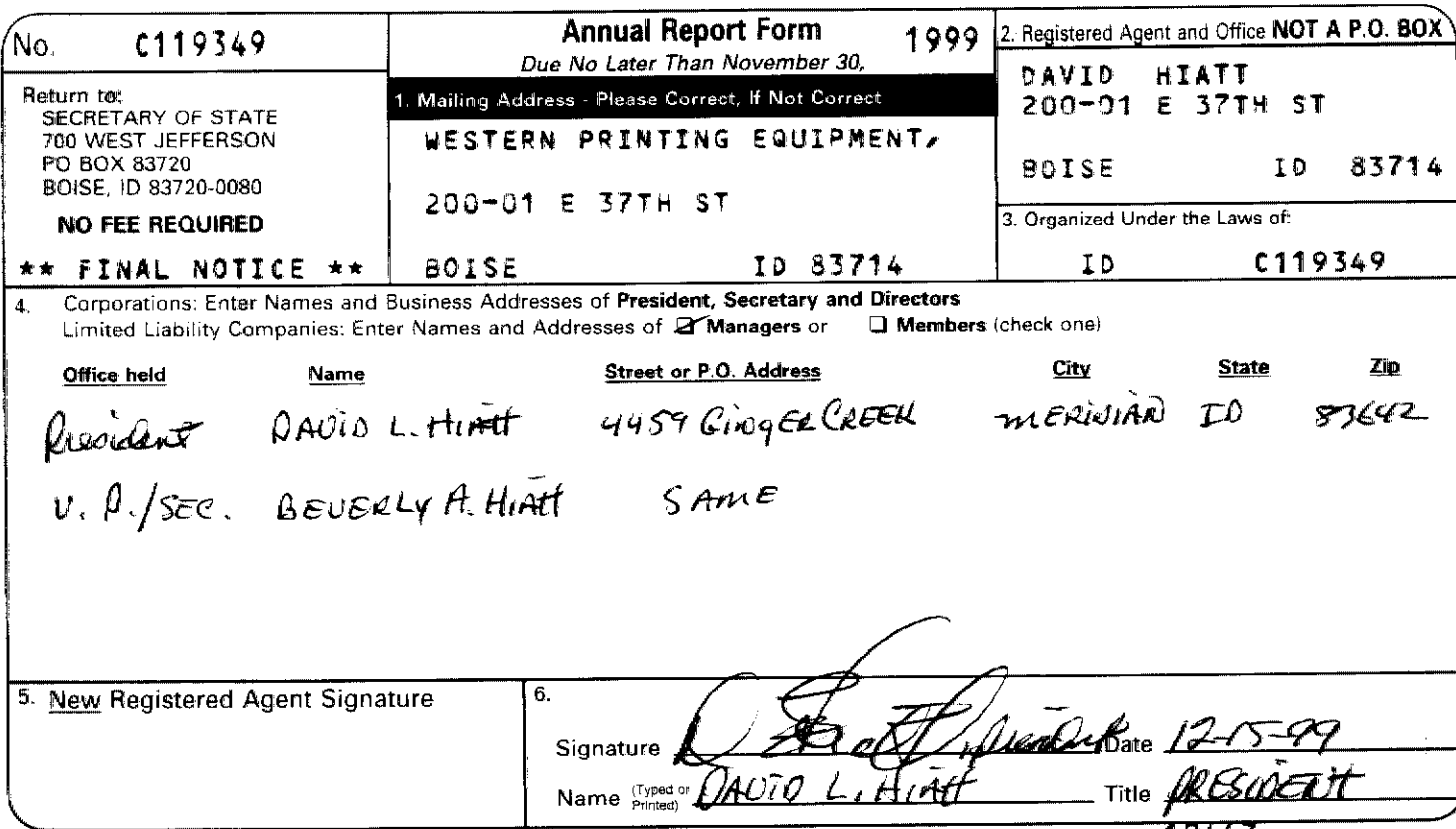 No. C119349
Return to:
SECRETARY OF STATE
700 WEST JEFFERSON
PO BOX 83720
BOISE, ID 83720-0080
NO FEE REQUIRED
** FINAL NOTICE **
Annual Report Form 1999
Due No Later Than November 30,
1. Mailing Address - Please Correct, If Not Correct
WESTERN PRINTING EQUIPMENT,
200-01 E 37TH ST
BOISE ID 83714
2. Registered Agent and Office NOT A P.O. BOX
DAVID HIATT
200-01 E 37TH ST
BOISE ID 83714
3. Organized Under the Laws of:
ID C119349
4. Corporations: Enter Names and Business Addresses of President, Secretary and Directors
Limited Liability Companies: Enter Names and Addresses of ☑ Managers or ☐ Members (check one)
Office held Name Street or P.O. Address City State Zip
President DAVID L. HIATT 4459 GINGER CREEK MERIDIAN ID 83642
V. P./SEC. BEVERLY A. HIATT SAME
5. New Registered Agent Signature
6.
Signature President Date 12-15-99
Name (Typed or Printed) DAVID L. HIATT Title PRESIDENT